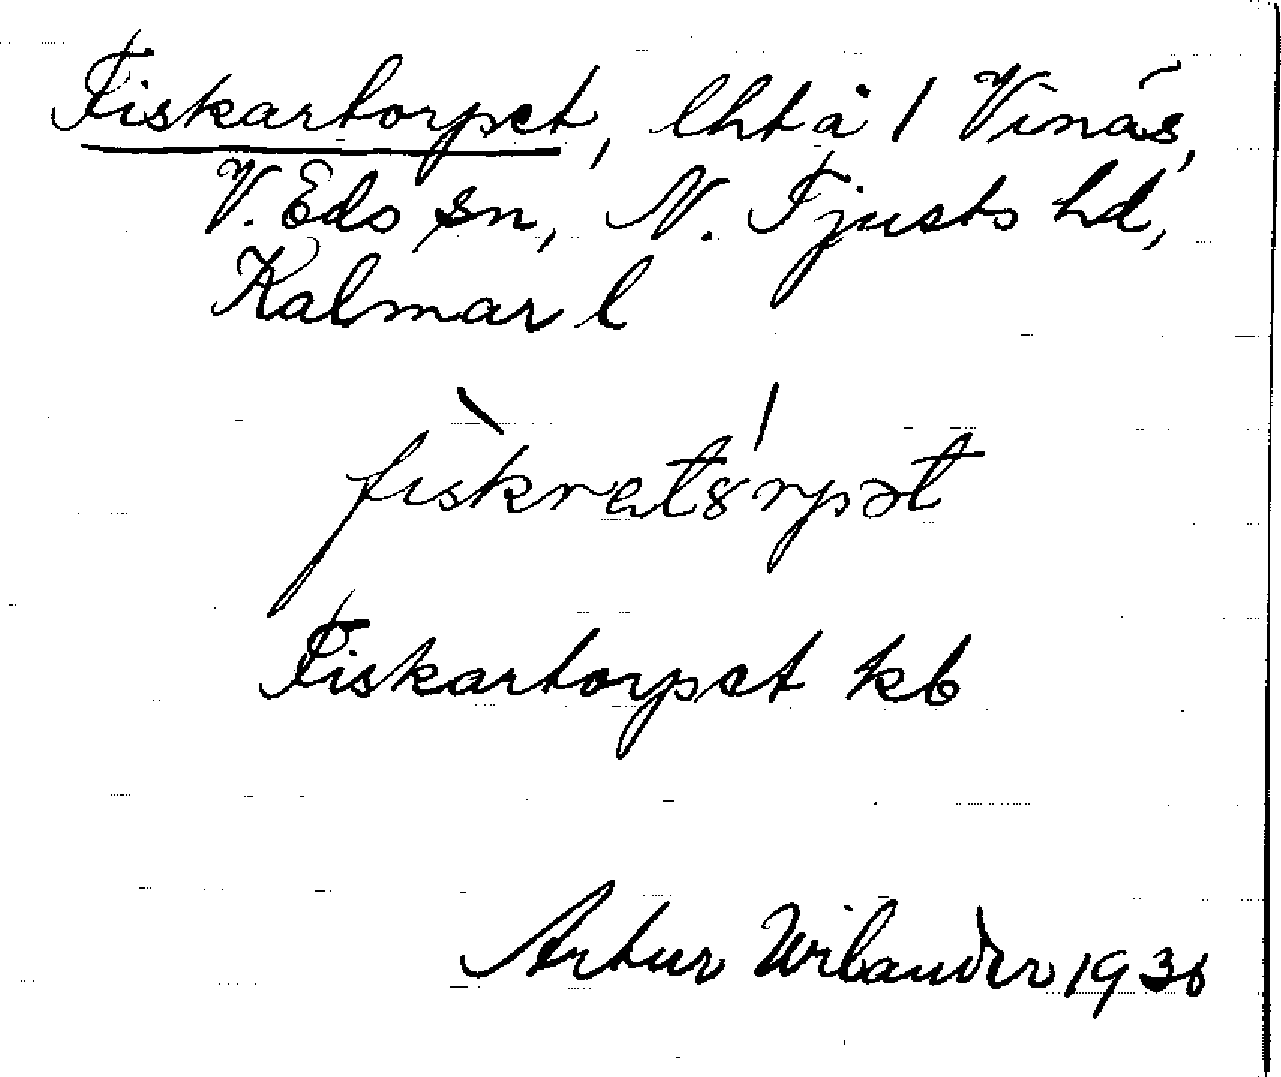 Fiskartorpet, lht å 1 Vinäs,
V. Eds sn, N. Tjusts hd,
Kalmar l
fiskratȣrpət
Fiskartorpet kb
Artur Wilander 1936